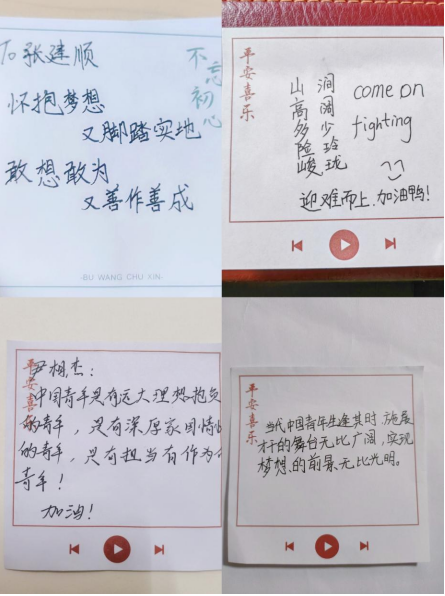 To 张建顺
不忘初心
怀抱梦想
又脚踏实地
敢想敢为
又善作善成
-BU WANG CHU XIN-
平安喜乐
山涧
高阔
多少
险玲
峻珑
come on
fighting
迎难而上.加油鸭!
平安喜乐
尹相杰:
中国青年是有远大理想抱负
的青年,是有深厚家国情怀
的青年,只有担当有作为的
青年!
加油!
平安喜乐
当代中国青年生逢其时,施展
才干的舞台无比广阔,实现
梦想的前景无比光明。